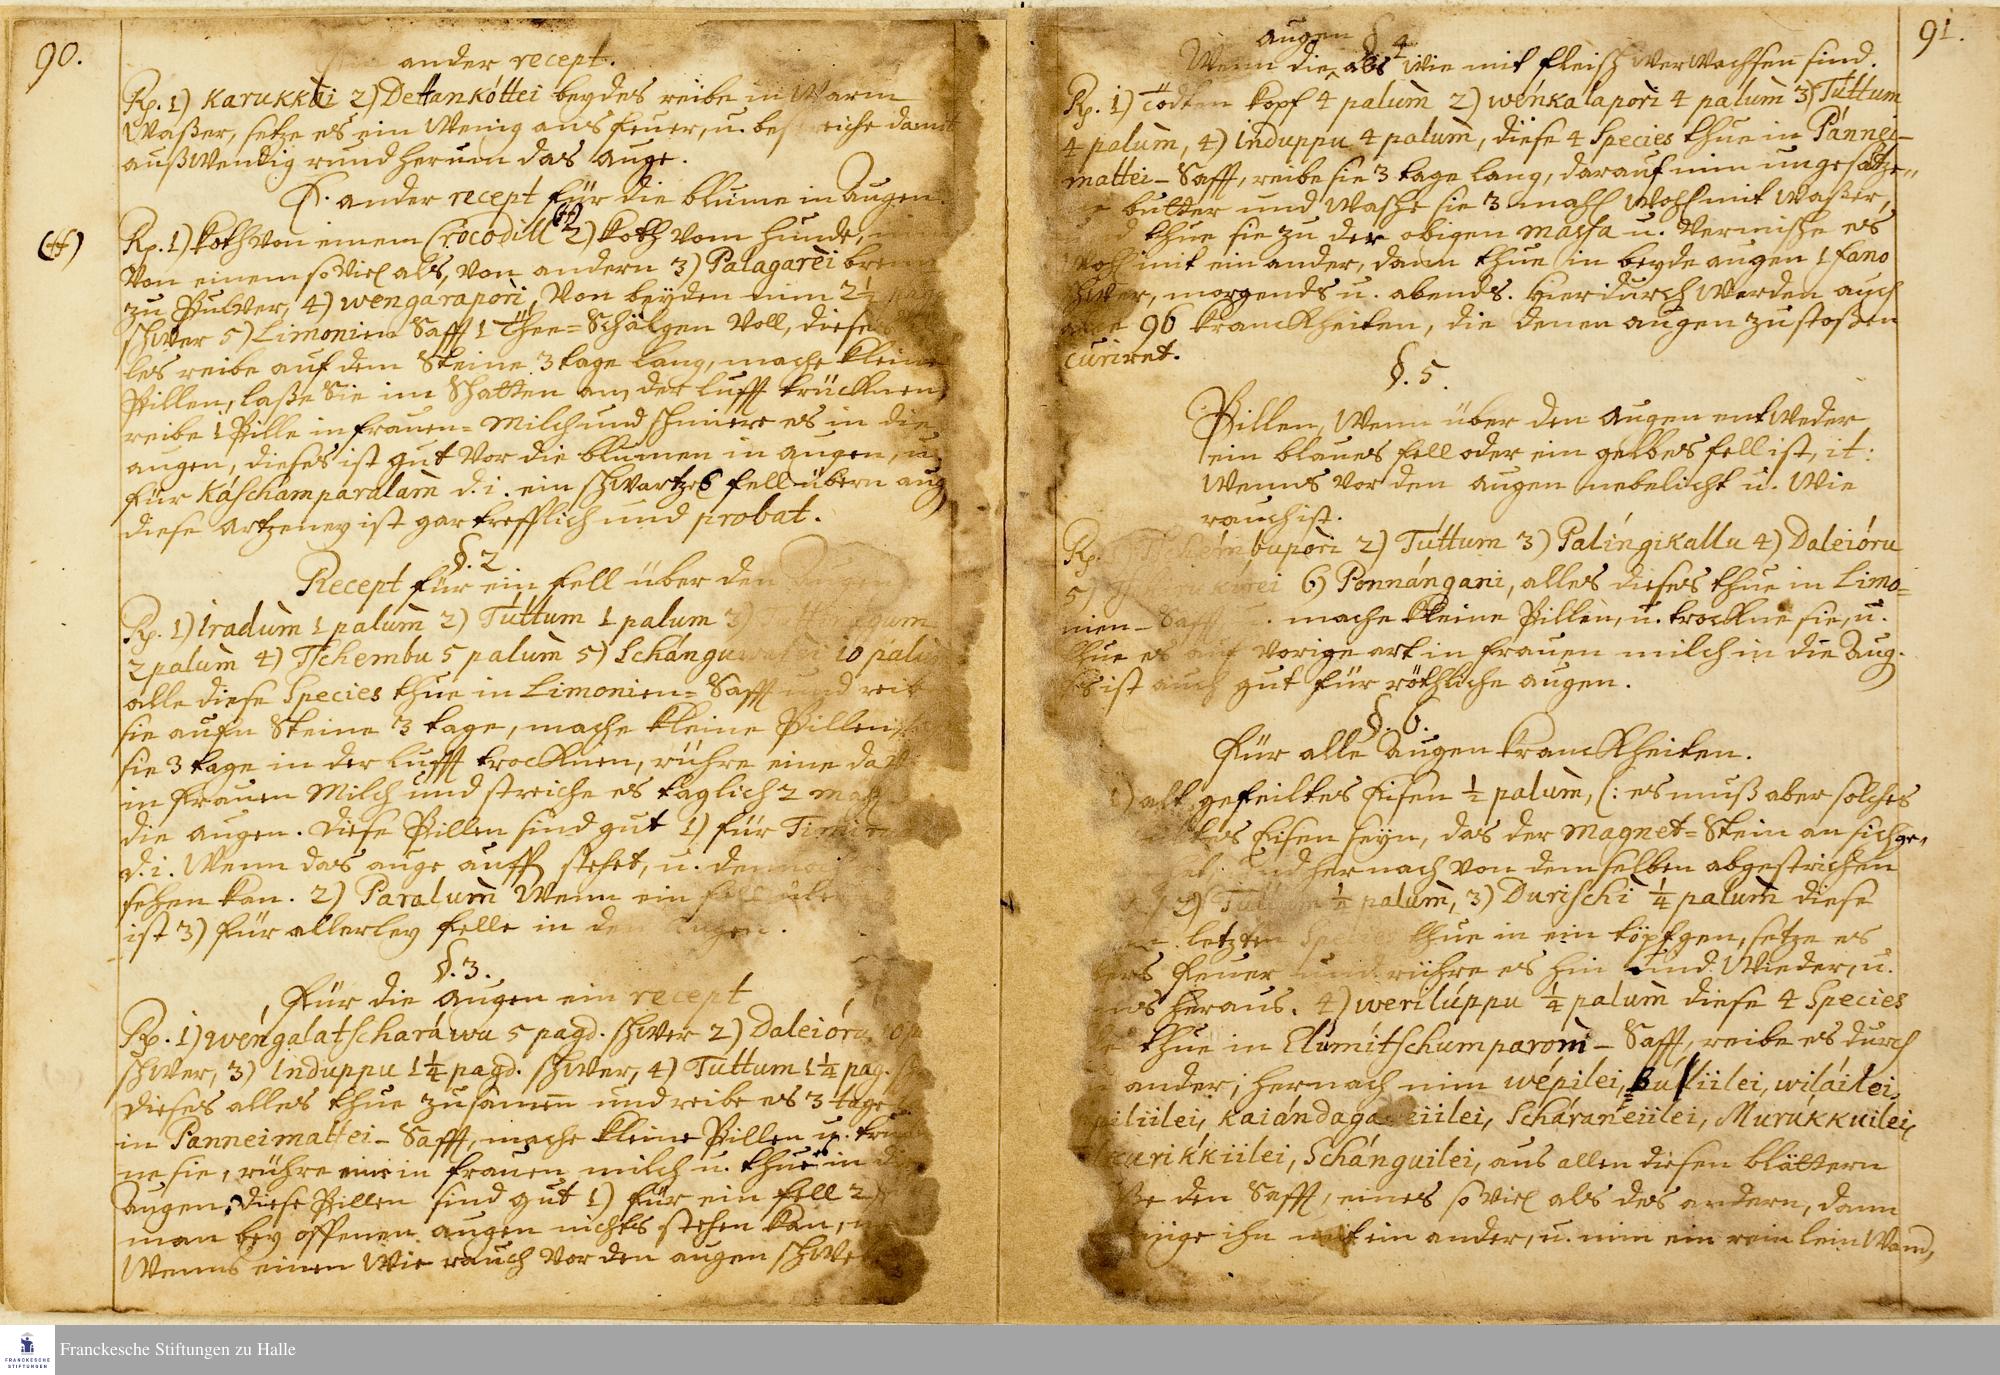 90.
ander recept.
Rp. 1) Karukkái 2) Dettankóttei beydes reibe in Warm
Waßer, setze es ein Wenig ans feuer, u. bestreiche damit
außwendig rund herum das auge.
ander recept für die blume in Augen.
(#) Rp. 1) Koth von einem Crocodill (#) 2) Koth vom Hunde,
Von einem so viel als, von andern 3) Palagarèi brenn
zu Pulver, 4) wengarapori, Von beyden nim 2½ pagd
schwer 5) Limonien Safft 1 Thee=Schälgen voll, dieses
les reibe auf dem Steine 3 tage lang, mache kleine
Pillen, laße Sie im Schatten an der Lufft trücknen,
reibe 1 Pille in frauen=Milch und schmiere es in die
augen, dieses ist gut vor die blumen in augen, u.
für Káschamparalam d. i. ein schwartzes fell übern aug
diese artzeney ist gar trefflich und probat.
§. 2
Recept für ein fell über den Augen
Rp. 1) Iradùm 1 palùm 2) Túttum 1 palum 3)
2 palum 4) Tschembu 5 palùm 5) 10 palùm
alle diese Species thue in Limonien=Safft und reib
sie aufn Steine 3 tage, mache kleine Pillen,
sie 3 tage in der Lufft trocknen, rühre eine da
in frauen Milch und streiche es täglich 2 mahl
die augen. Diese Pillen sind gut 1) für
d. i. Wenn das auge auff stehet, u. dennoch
sehen kan. 2) Paralum Wenn ein fell über
ist 3) für allerley felle in den Augen.
§. 3.
Für die Augen ein recept
Rp. 1) wéngalatscharáwu 5 pagd. schwer 2) Daleióru,
schwer, 3) Induppu 1¼ pagd. schwer, 4) Tuttum 1¼ pag.
dieses alles thue zusamen und reibe es 3 tage
in Panneimattei-Safft, mache kleine Pillen u.
ne sie, rühre eine in frauen milch u. thue in die
augen, diese Pillen sind gut 1) für ein fell 2)
man bey offenen augen nichts sehen kan,
Wenns einem wie rauch vor den augen
91.
augen § 4
Wenn die als wie mit fleisch verwachsen sind.
Rp. 1) Todten kopf 4 palum 2) wénkalapori 4 palum 3) Túttum
4 palum, 4) Induppu 4 palum, diese 4 Species thue in Pánnei-
mattei-Safft, reibe sie 3 tage lang, darauf nim ungesaltze,,
butter und wasche sie 3 mahl wohl mit Waßer,
thue sie zu der obigen massa u. vermische es
wohl mit ein ander, dann thue in beyde augen 1 fano
schwer, morgends u. abends. Hierdurch werden auch
96 kranckheiten, die denen augen zustoßen
curiret.
§. 5.
Pillen, Wenn über den Augen entweder
ein blaues fell oder ein gelbes fell ist, it:
Wenns vor den augen nebelicht u. wie
rauch ist.
Rp. 2) Túttum 3) Palíngikallu 4) Daleióru
5) 6) Ponnángani, alles dieses thue in Limo=
nien-Safft mache kleine Pillen, u. trockne sie, u.
thue es auf vorige art in frauen milch in die Aug.
Es ist auch gut für röthliche augen.
§. 6.
Für alle Augen kranckheiten.
1) alt gefeiltes Eisen ½ palùm, (: es muß aber solches
Eisen seyn, das der Magnet=Stein an sich ge,,
und hernach von demselben abgestrichen
2) ¼ palùm, 3) Durischi ¼ palum diese
letzten Species thue in ein köpfgen, setze es
feuer und rühre es hin und wieder, u.
heraus. 4) weriluppu ¼ palùm diese 4 Species
thue in Elúmitschumparom-Safft, reibe es durch
ander, hernach nim wépilei, wiláilei,
Scháraneiilei, Murúkkuilei,
Schánguilei, aus allen diesen blättern
den Safft, eines so viel als des andern, dann
ihn mit ein ander, u. nim ein rein leinwand,
FRANCKESCHE STIFTUNGEN
Franckesche Stiftungen zu Halle